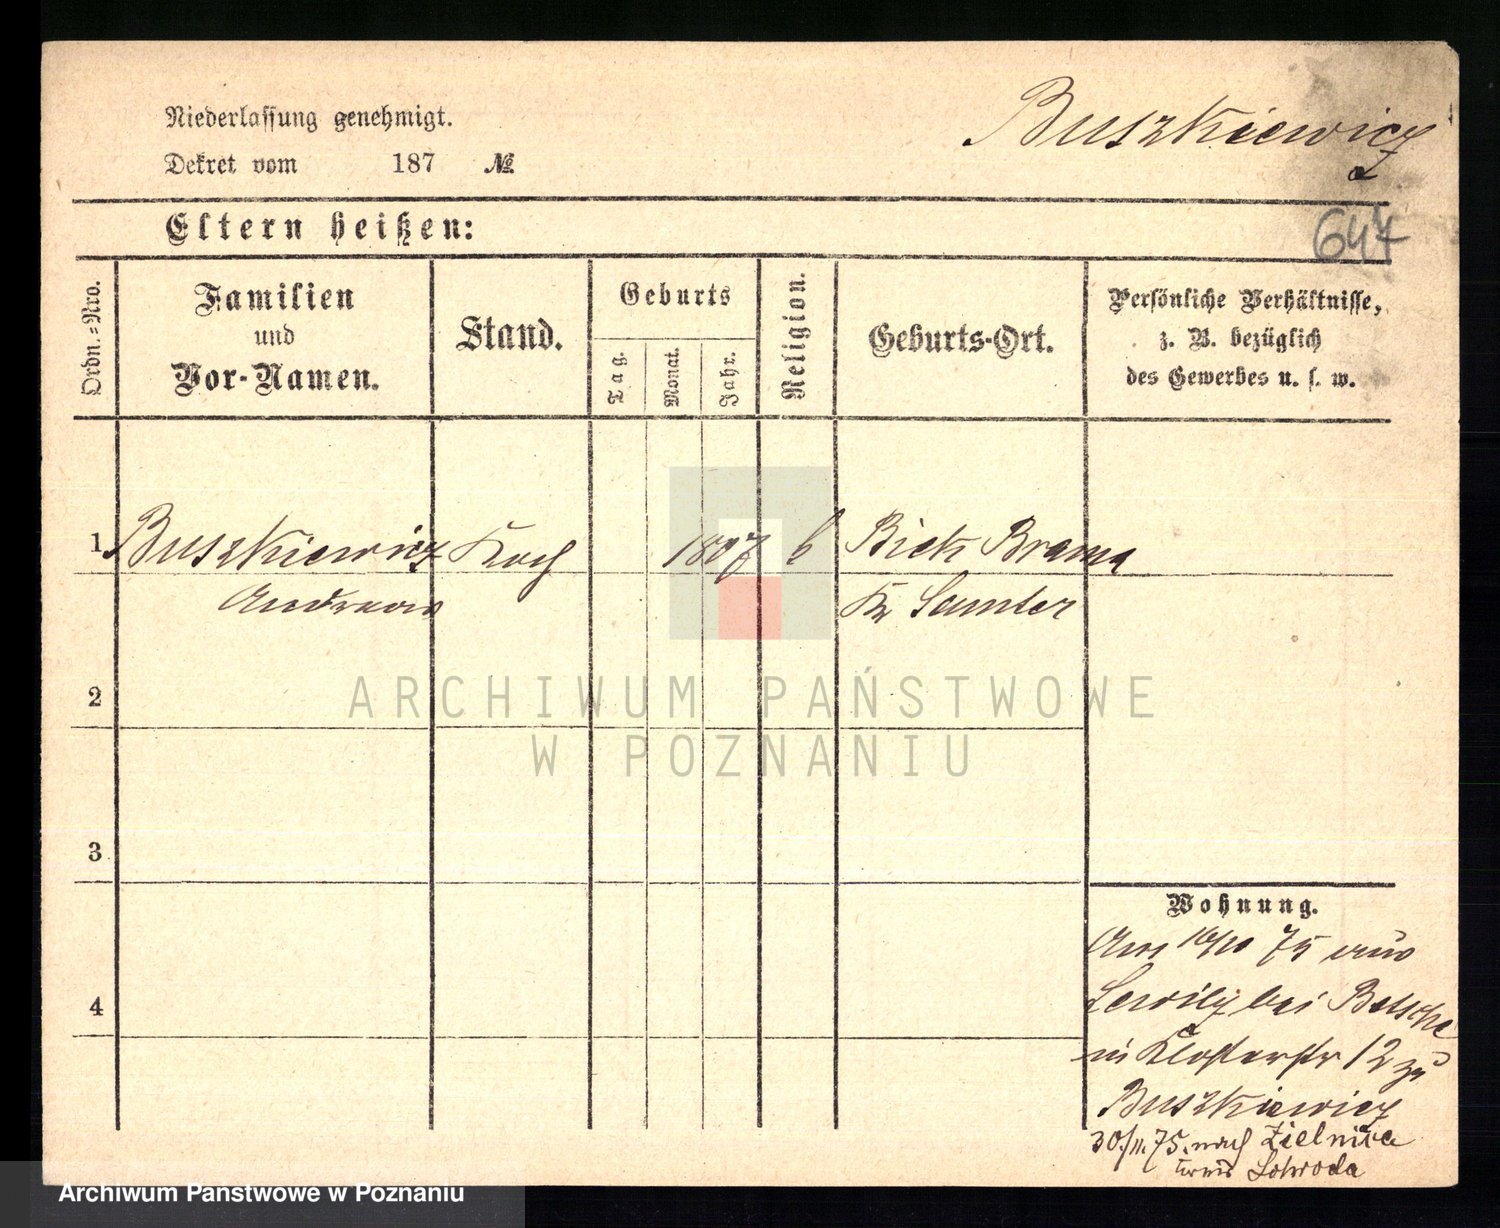 Niederlassung genehmigt.
Dekret vom 187 №
Buszkiewicz
647
Eltern heißen:
Ordn.-Nro.
Familien
und
Vor-Namen.
Stand.
Geburts
Tag.
Monat.
Jahr.
Religion.
Geburts-Ort.
Persönliche Verhältnisse,
z. B. bezüglich
des Gewerbes u. s. w.
1 Buszkiewicz Koch 1807 Brama
Andreas Kr Samter
2
ARCHIWUM PAŃSTWOWE
W POZNANIU
3
4
Wohnung.
Am 16/10 75 aus
bei Betsche
in Klosterstr 12 zu
Buszkiewicz
30./11. 75. nach Zielnica
Archiwum Państwowe w Poznaniu